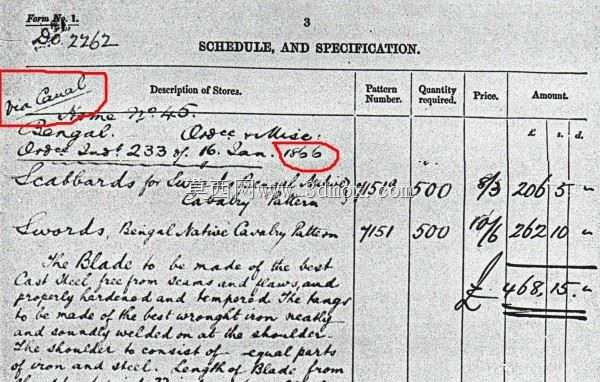 Form No. 1.
3
Do. 2262
SCHEDULE, AND SPECIFICATION.
Via Canal
Description of Stores.
Pattern Number.
Quantity required.
Price.
Amount.
£ s. d.
Nome No. 45.
Bengal. Ordce & Misc:
Ordce Indt 233 of 16. Jan. 1866
Scabbards for Swords Bengal Native 500 8/3 206 5 "
Cavalry Pattern
Swords, Bengal Native Cavalry Pattern 7151 500 10/6 262 10 "
£ 468, 15. "
The Blade to be made of the best
Cast Steel free from seams and flaws, and
properly hardened and tempered The tangs
to be made of the best wrought iron neatly
and soundly welded on at the shoulder.
The shoulder to consist of equal parts
of iron and steel. Length of Blade from